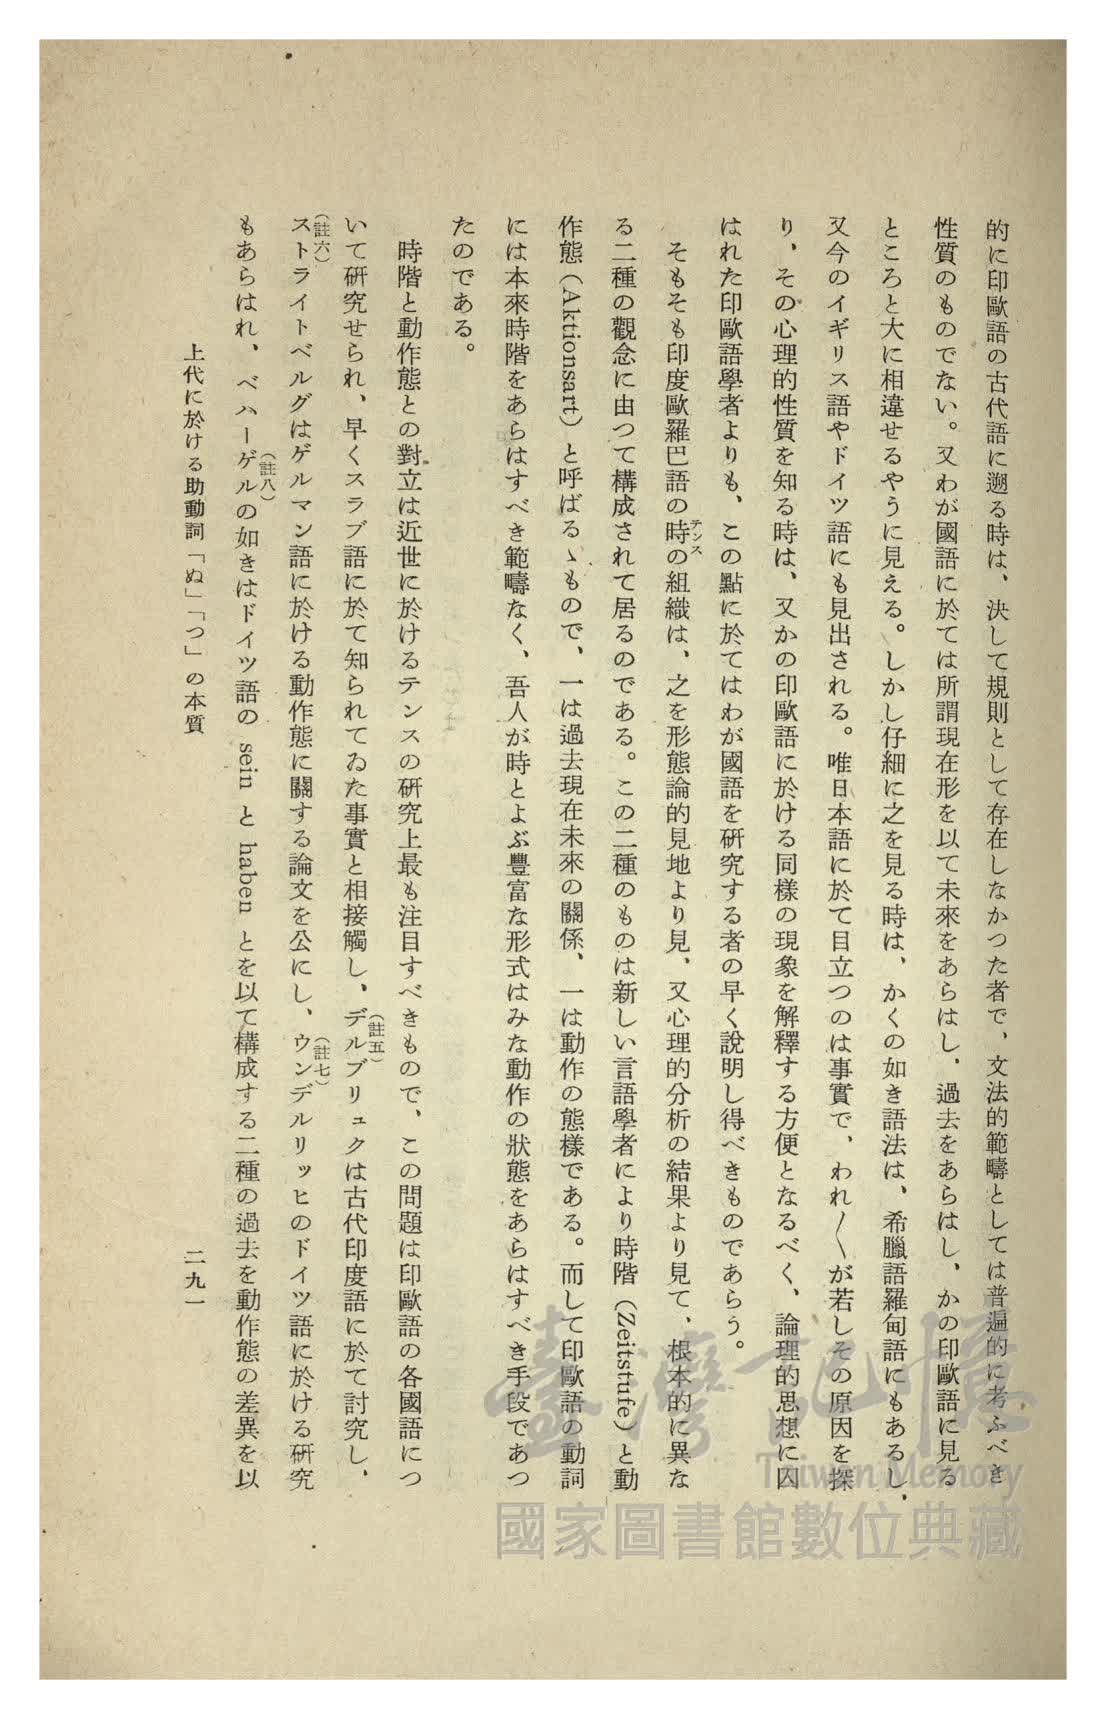 的に印歐語の古代語に遡る時は、決して規則として存在しなかつた者で、文法的範疇としては普遍的に考ふべき
性質のものでない。又わが國語に於ては所謂現在形を以て未來をあらはし、過去をあらはし、かの印歐語に見る
ところと大に相違せるやうに見える。しかし仔細に之を見る時は、かくの如き語法は、希臘語羅甸語にもあるし、
又今のイギリス語やドイツ語にも見出される。唯日本語に於て目立つのは事實で、われ〳〵が若しその原因を探
り、その心理的性質を知る時は、又かの印歐語に於ける同樣の現象を解釋する方便となるべく、論理的思想に囚
はれた印歐語學者よりも、この點に於てはわが國語を研究する者の早く說明し得べきものであらう。
そもそも印度歐羅巴語の時の組織は、之を形態論的見地より見、又心理的分析の結果より見て、根本的に異な
テンス
る二種の觀念に由つて構成されて居るのである。この二種のものは新しい言語學者により時階（Zeitstufe）と動
作態（Aktionsart）と呼ばるゝもので、一は過去現在未來の關係、一は動作の態樣である。而して印歐語の動詞
には本來時階をあらはすべき範疇なく、吾人が時とよぶ豐富な形式はみな動作の狀態をあらはすべき手段であつ
たのである。
時階と動作態との對立は近世に於けるテンスの研究上最も注目すべきもので、この問題は印歐語の各國語につ
いて研究せられ、早くスラブ語に於て知られてゐた事實と相接觸し、デルブリュクは古代印度語に於て討究し、
（註五）
ストライトベルグはゲルマン語に於ける動作態に關する論文を公にし、ウンデルリッヒのドイツ語に於ける研究
（註六）
（註七）
もあらはれ、ベハーゲルの如きはドイツ語の sein と haben とを以て構成する二種の過去を動作態の差異を以
（註八）
上代に於ける助動詞「ぬ」「つ」の本質
二九一
臺灣記憶
Taiwan Memory
國家圖書館數位典藏